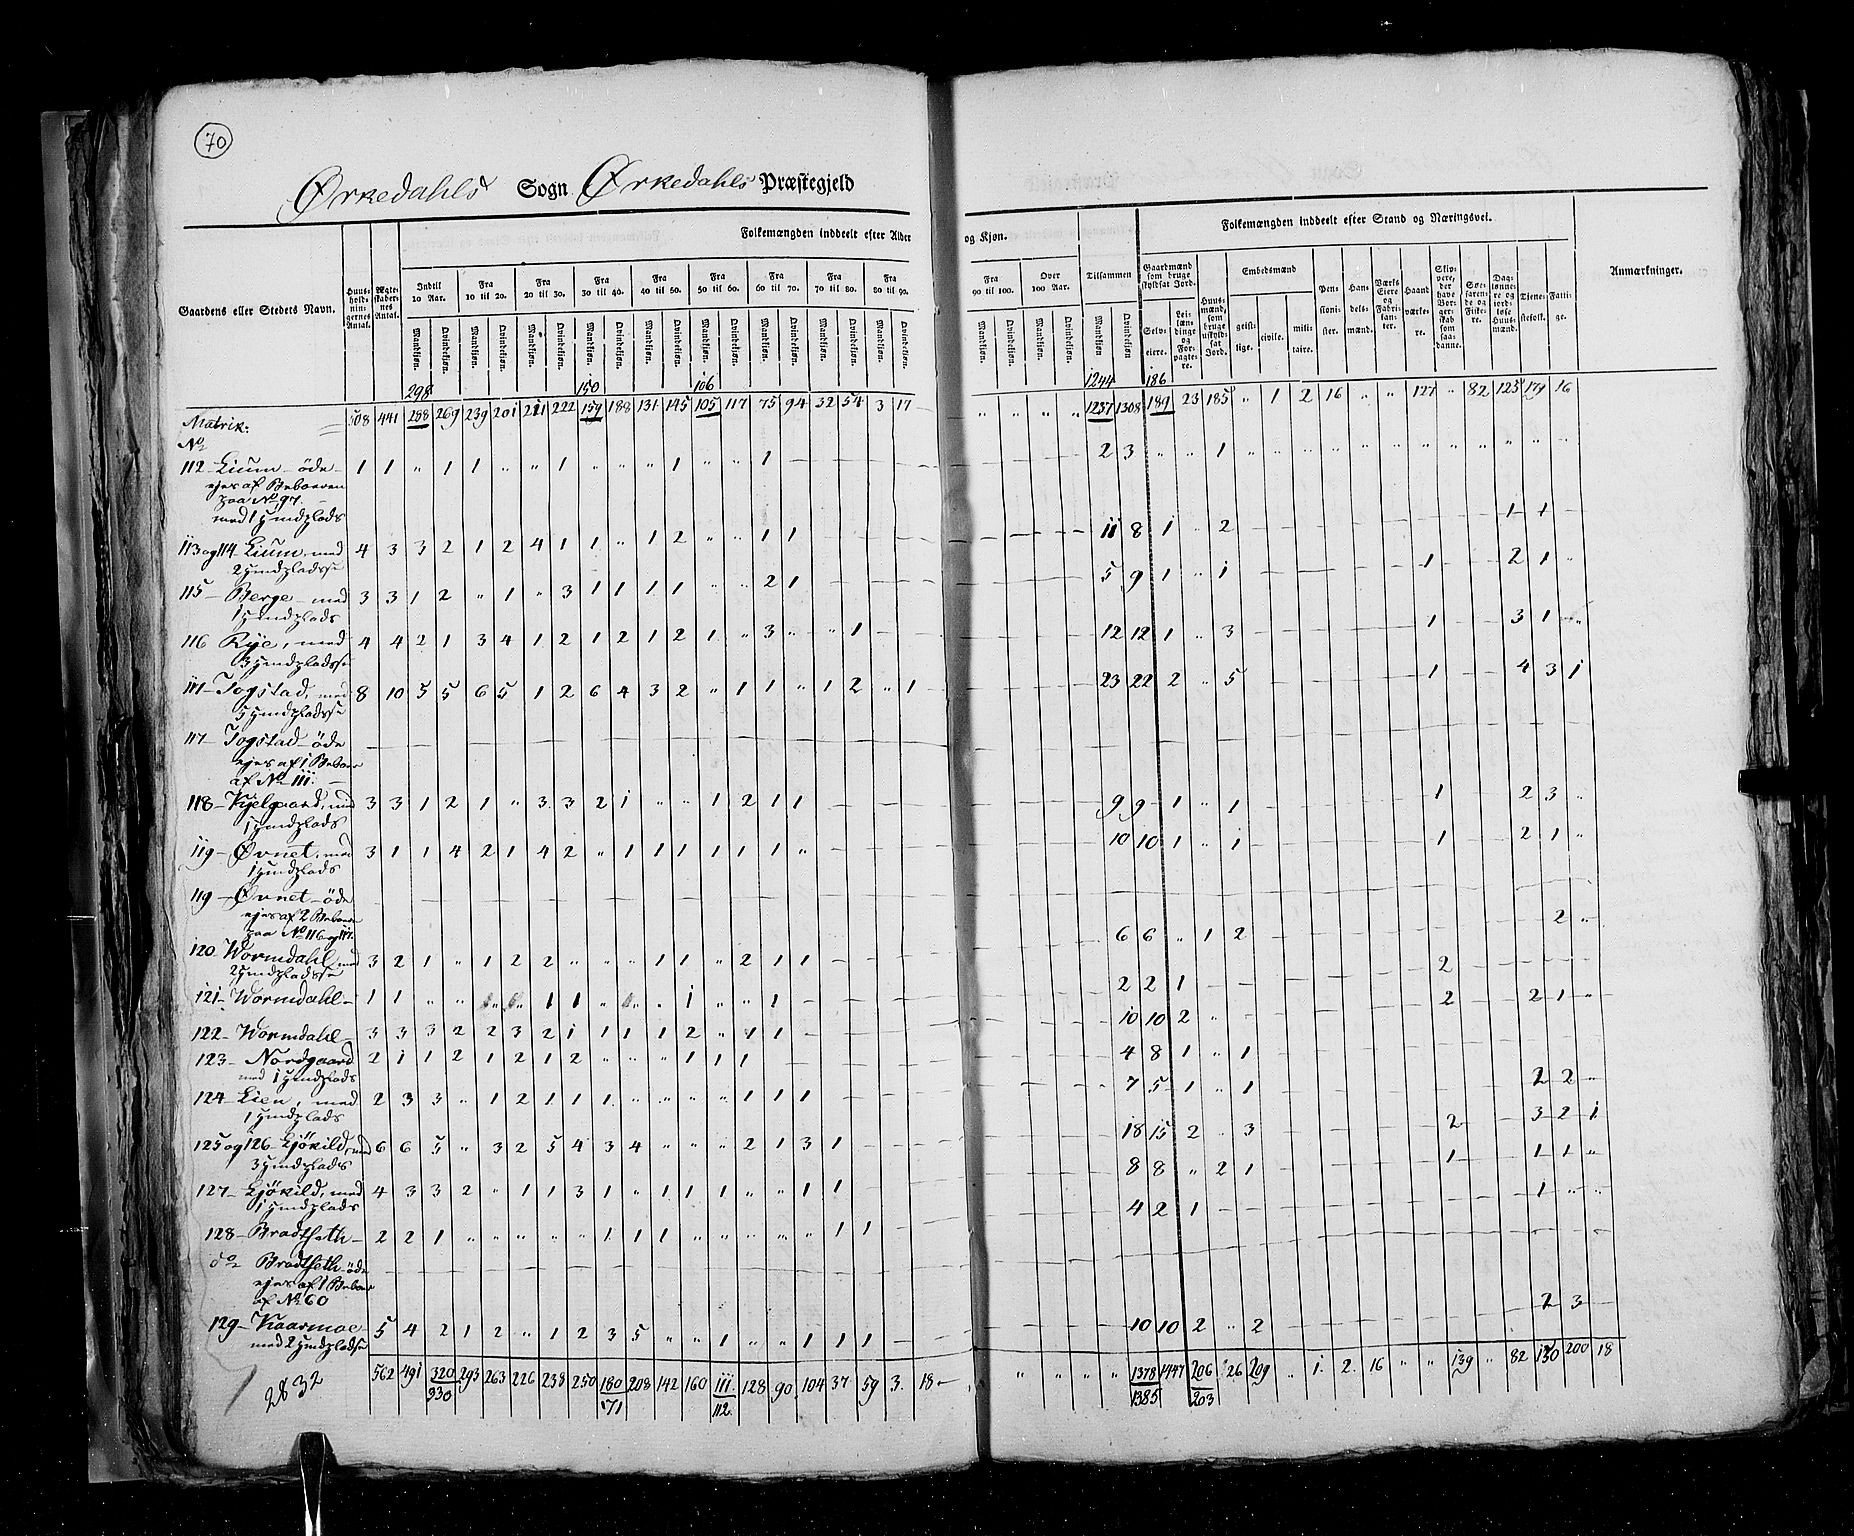 70
Ørkedahls Sogn Ørkedahls Præstegjeld
Folkemængden inddeelt efter Alder og Kjøn. Folkemængden inddeelt efter Stand og Næringsvei.
Gaardens eller Stedets Navn. Huus-holdnin-gernes Antal. Ægte-skaber-nes Antal. Indtil 10 Aar. Fra 10 til 20. Fra 20 til 30. Fra 30 til 40. Fra 40 til 50. Fra 50 til 60. Fra 60 til 70. Fra 70 til 80. Fra 80 til 90. Fra 90 til 100. Over 100 Aar. Tilsammen Gaardmænd som bruge skyldsat Jord. Huus-mænd, som bruge uskyld-sat Jord. Embedsmænd Pen-sioni-ster. Han-dels-mænd. Værks Eiere og Fabri-kan-ter. Haand-værke-re. Søe-farende og Fiske-re. Dag-lønne-re og jord-løse Huus-mænd. Tjene-stefolk. Fatti-ge. Anmærkninger.
Mandkjøn. Qvindekjøn. Selv-eiere. Lei-læn-dinge og For-pagte-re. geist-lige. civile. mili-taire.
298 150 106 1244 186
Matrik: 508 441 288 269 239 201 211 222 159 188 131 145 105 117 75 94 32 54 3 17 " " " " 1237 1308 189 23 185 " 1 2 16 " " 127 " 82 125 179 16
No
112 Lium öde 1 1 " 1 1 " " 1 " " " 1 " " 1 2 3 " " 1
ejes af Beboeren
paa No 97.
med 1 Huusplads
113 og 114 Lium, med 4 3 3 2 1 2 4 1 1 " 1 2 " " 1 1 11 8 1 " 2 1 1
2 Huuspladse
115 Berge med 3 3 1 2 " 1 " 3 1 1 1 1 " " 2 1 5 9 1 " 1 1 2 1
1 Huusplads
116 Rye, med 4 4 2 1 3 4 1 2 1 2 1 2 1 " 3 " " 1 12 12 1 " 3 1 3 1
3 Huuspladse
111 Togstad, med 8 10 5 5 6 5 1 2 6 4 3 2 " 1 1 " 1 2 " 1 23 22 2 " 5 1 4 3 1
5 Huuspladse
117 Togstad öde
ejes af 1 Beboer
af No 111.
118 Kjelgaard, med 3 3 1 2 1 " 3 3 2 1 " " 1 2 1 1 9 9 1 " 1 1 2 3 "
1 Huusplads
119 Øvnet, med 3 1 1 4 2 1 4 2 " 1 1 1 1 1 1 " 10 10 1 " 1 1 2 1 "
1 Huusplads
119 Øvnet öde
ejes af 2 Beboere
paa No 116 og 117.
120 Wormdahl, med 3 2 1 " 1 2 2 " " " 1 1 " 2 1 1 6 6 " 1 2 2 "
2 Huuspladse
121 Wormdahl 1 1 " " " " 1 1 " " " 1 " " 1 2 2 1 2
122 Wormdahl 3 3 3 2 2 3 2 1 1 1 1 2 " 1 1 10 10 2 " 2 2 1 "
123 Nordgaard 2 1 1 2 1 2 1 2 " " " 1 1 1 4 8 1 " 1
med 1 Huusplads
124 Lien, med 2 3 3 " 1 2 1 1 1 " " " " 1 1 1 7 5 1 " 1 2 2 "
1 Huusplads
125 og 126 Ljökild, med 6 6 5 " 3 2 5 4 3 4 " " " 2 1 3 1 18 15 2 " 3 2 3 2 1
3 Huusplads
127 Ljökild, med 4 3 3 2 " 1 1 3 1 " 1 1 1 " " 1 1 8 8 " 2 1 1 1 1 "
1 Huusplads
128 Bradseth 2 2 1 " " " " " 1 1 1 " " " " " 1 1 4 2 1 1 " "
do Bradseth öde
ejes af 1 Beboer
af No 60
129 Kaarmoe 5 4 2 1 2 " 1 2 3 5 " " 1 " " 1 1 1 10 10 2 " 2 2 3
med 2 Huuspladse
562 491 320 293 263 226 238 250 180 208 142 160 111. 128 90. 104 37 59 3. 18 " " " " 1378 1447 206 26 209 " 1. 2. 16 " " 139 " 82 150 200 18
330 171 112. 1385 203
2832